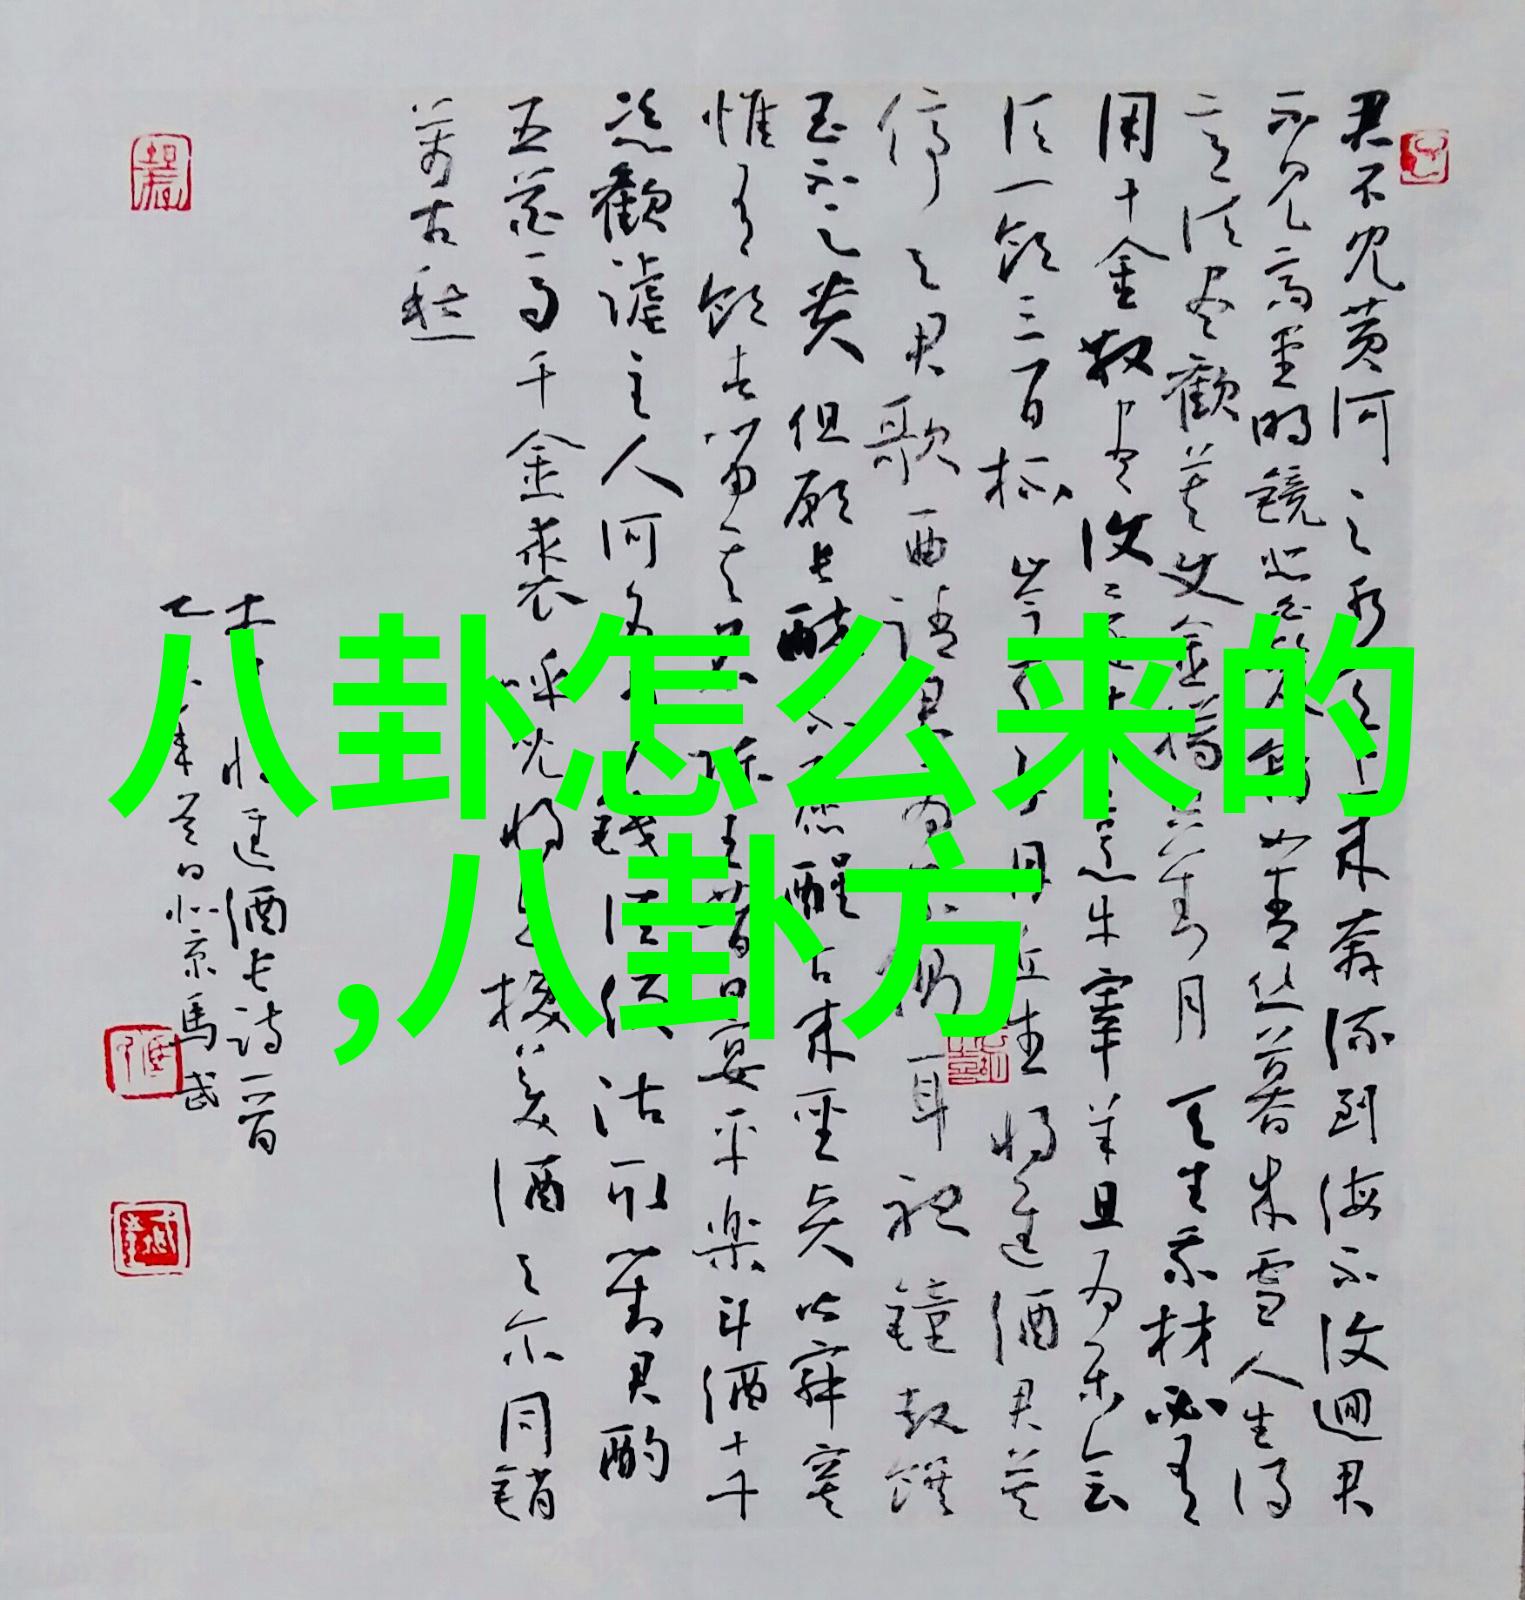 八卦怎么来的
,八卦方
君不见黄河之水天上来奔流到海不復迴君
不见高堂明镜悲白发朝如青丝暮成雪人生得
意须尽歡莫使金樽空对月天生我材必有
用千金散尽復还来烹牛宰羊且为乐会
须一饮三百杯岑夫子丹丘生将进酒君莫
停与君歌一曲请君为我侧耳听鐘鼓馔
玉不足贵但愿长醉不愿醒古来圣贤皆寂寞
惟有饮者留其名陈王昔日宴平楽斗酒十千
恣歡谑主人何为言少钱径须沽取对君酌
五花马千金裘呼儿将出换美酒与尔同销
萬古愁
将进酒长诗一首
年 北京馬武